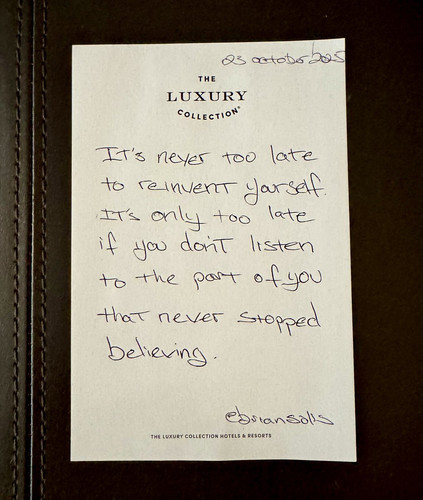 23 october 2025
THE
LUXURY
COLLECTION®
It's never too late
to reinvent yourself.
It's only too late
if you don't listen
to the part of you
that never stopped
believing.
@briansolis
THE LUXURY COLLECTION HOTELS & RESORTS